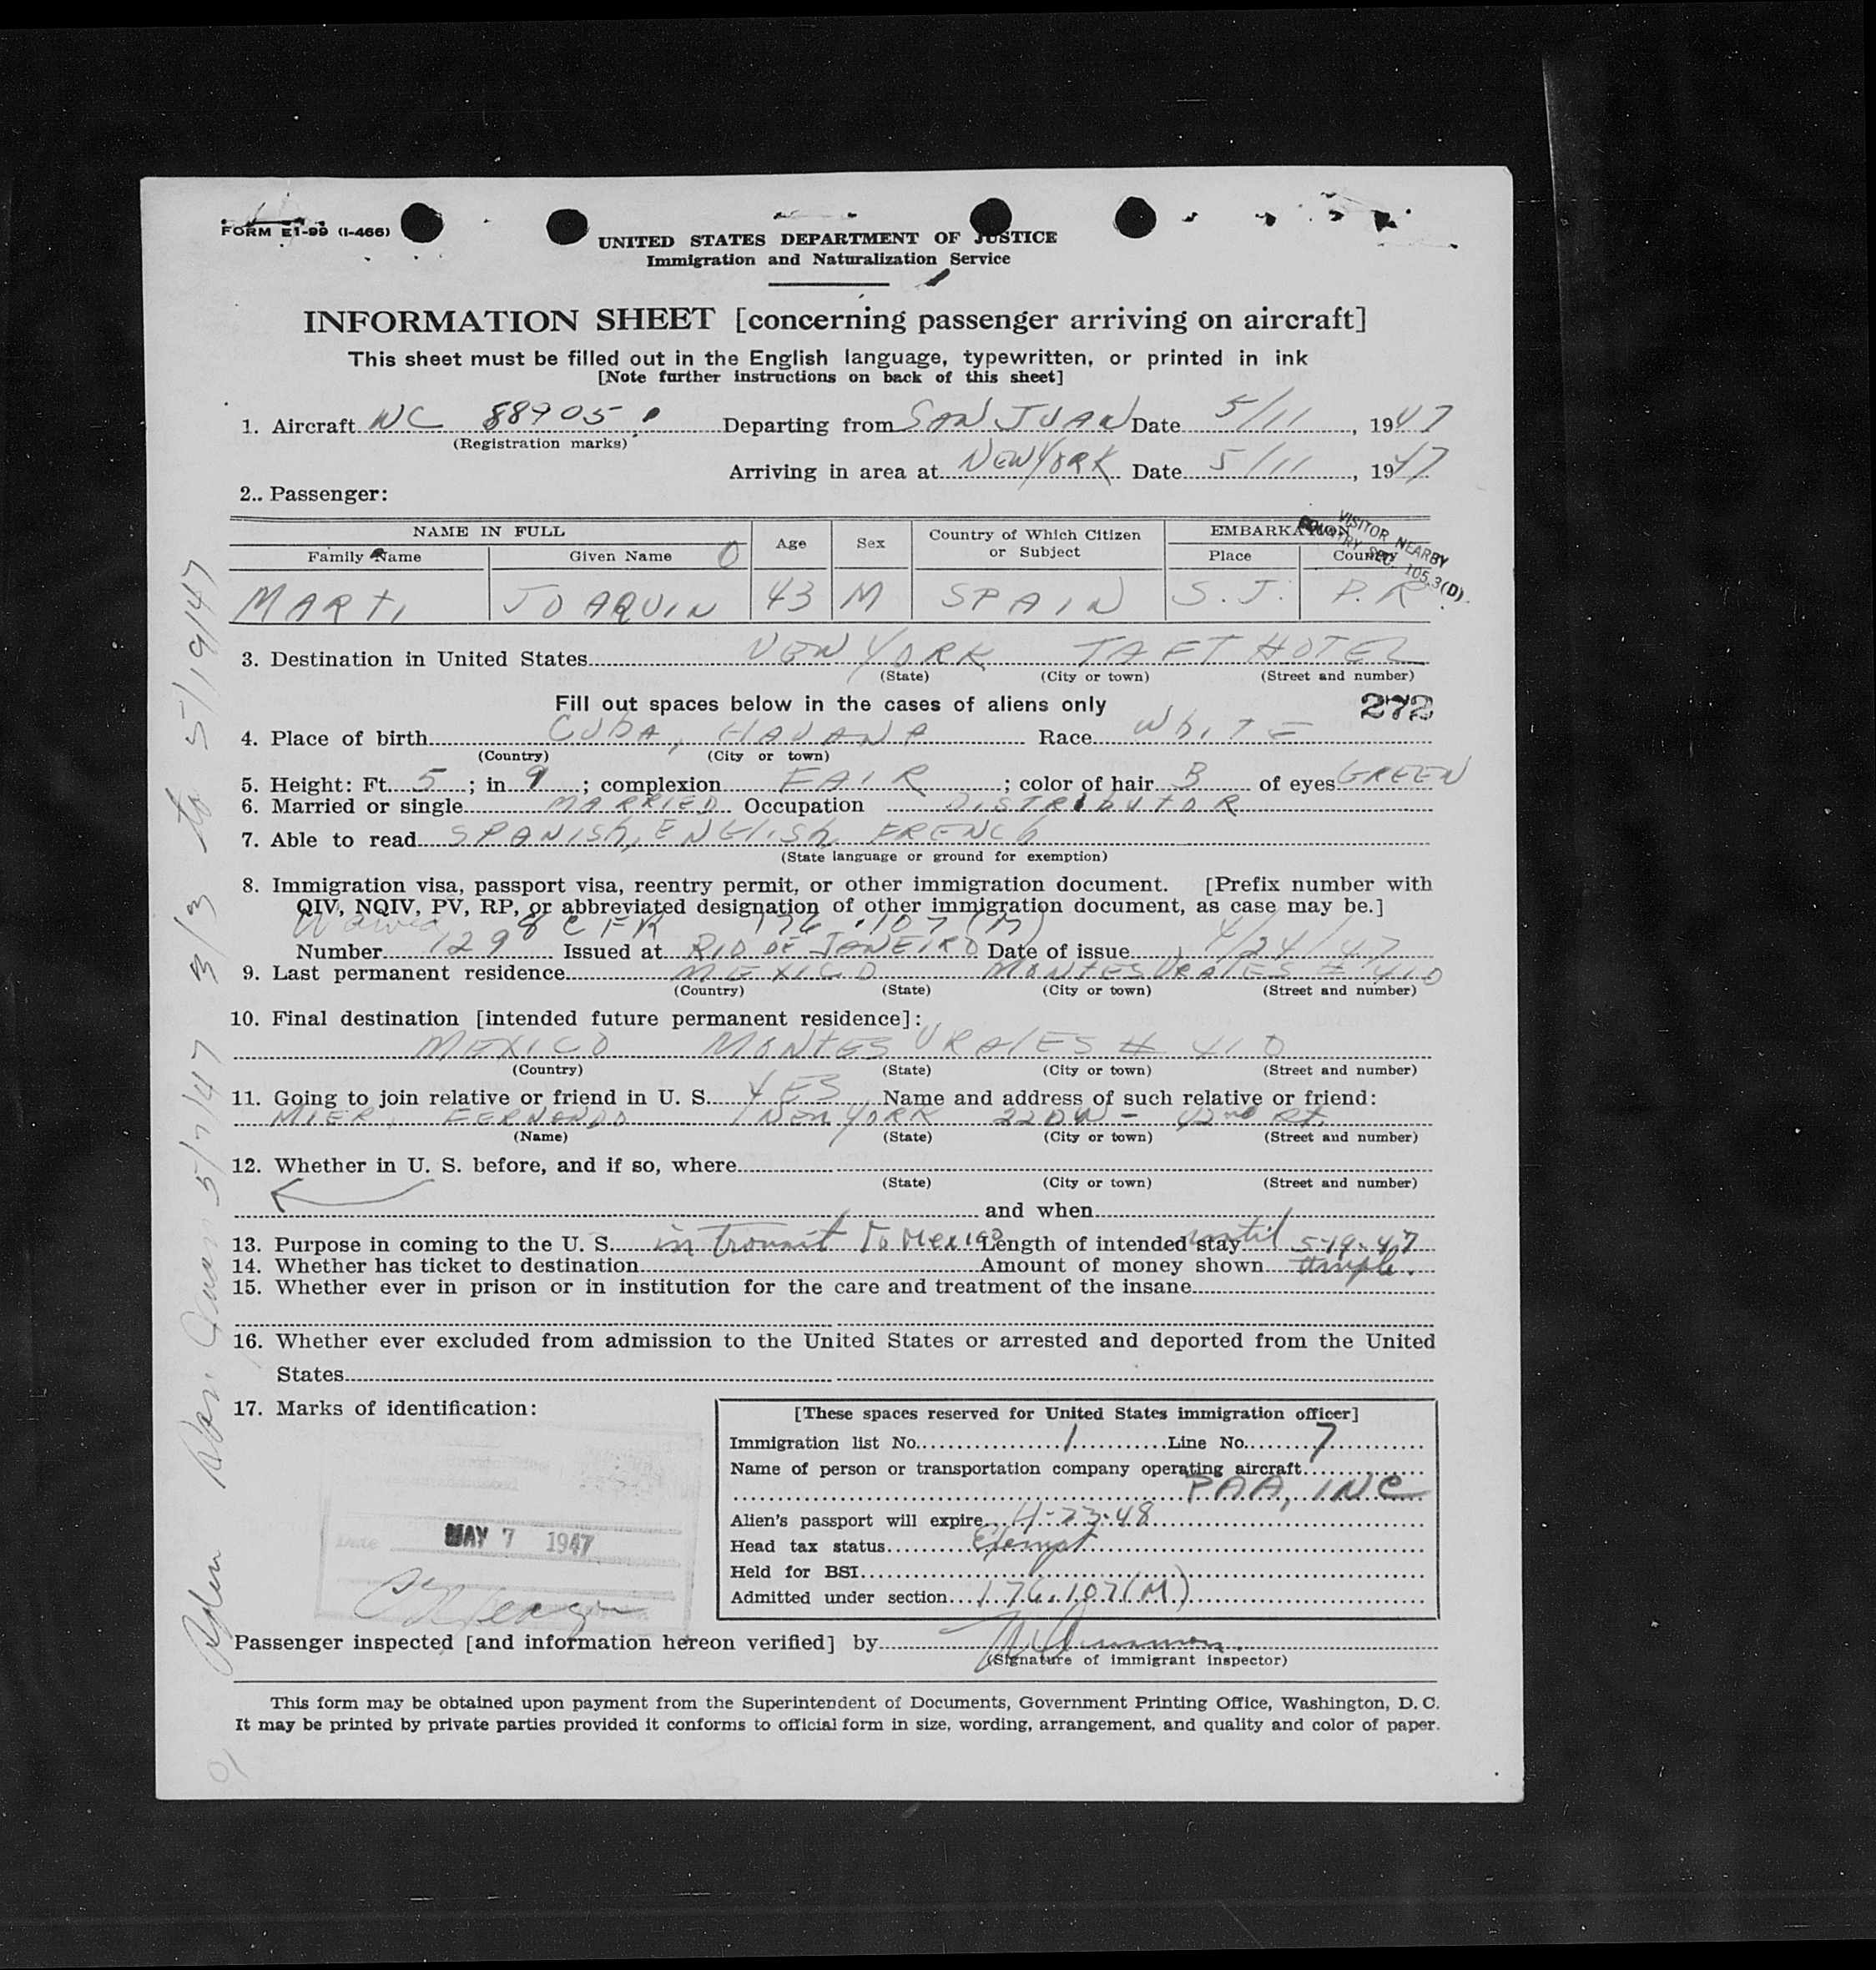 FORM E1-99 (I-466)
UNITED STATES DEPARTMENT OF JUSTICE
Immigration and Naturalization Service
INFORMATION SHEET [concerning passenger arriving on aircraft]
This sheet must be filled out in the English language, typewritten, or printed in ink
[Note further instructions on back of this sheet]
1. Aircraft NC 88905 Departing from SAN JUAN Date 5/11, 1947
(Registration marks)
Arriving in area at NEW YORK Date 5/11, 1947
2.. Passenger:
NAME IN FULL Age Sex Country of Which Citizen or Subject EMBARKATION
Family Name Given Name O Place Country
VISITOR NEARBY
COUNTRY SEC. 105.3(D).
MARTI JOAQUIN 43 M SPAIN S.J. P.R
3. Destination in United States NEW YORK TAFT HOTEL
(State) (City or town) (Street and number)
Fill out spaces below in the cases of aliens only 272
4. Place of birth CubA, HAVANA Race WhiTE
(Country) (City or town)
5. Height: Ft. 5; in 9; complexion FAIR; color of hair B of eyes GREEN
6. Married or single MARRIED Occupation DISTRIbUTOR
7. Able to read SPANISh, ENGLISh, FRENCh
(State language or ground for exemption)
8. Immigration visa, passport visa, reentry permit, or other immigration document. [Prefix number with
QIV, NQIV, PV, RP, or abbreviated designation of other immigration document, as case may be.]
8 CFR 176.107(M)
Number 1298 Issued at RIO DE JANEIRO Date of issue 4/24/47
9. Last permanent residence MEXICO MONTES URALES # 410
(Country) (State) (City or town) (Street and number)
10. Final destination [intended future permanent residence]:
MEXICO MONTES URALES # 410
(Country) (State) (City or town) (Street and number)
11. Going to join relative or friend in U. S. YES Name and address of such relative or friend:
MIER, FERNANDO NEW YORK 220 W - 42nd St.
(Name) (State) (City or town) (Street and number)
12. Whether in U. S. before, and if so, where
(State) (City or town) (Street and number)
and when
13. Purpose in coming to the U. S. in transit to Mexico Length of intended stay until 5-19-47
14. Whether has ticket to destination Amount of money shown ample.
15. Whether ever in prison or in institution for the care and treatment of the insane
16. Whether ever excluded from admission to the United States or arrested and deported from the United
States
17. Marks of identification:
Date MAY 7 1947
[These spaces reserved for United States immigration officer]
Immigration list No. 1 Line No. 7
Name of person or transportation company operating aircraft
PAA, INC
Alien's passport will expire 4-23-48
Head tax status Exempt
Held for BSI
Admitted under section 176.107(M)
Passenger inspected [and information hereon verified] by
(Signature of immigrant inspector)
This form may be obtained upon payment from the Superintendent of Documents, Government Printing Office, Washington, D. C.
It may be printed by private parties provided it conforms to official form in size, wording, arrangement, and quality and color of paper.
San Juan 5/7/47 3/3 to 5/19/47